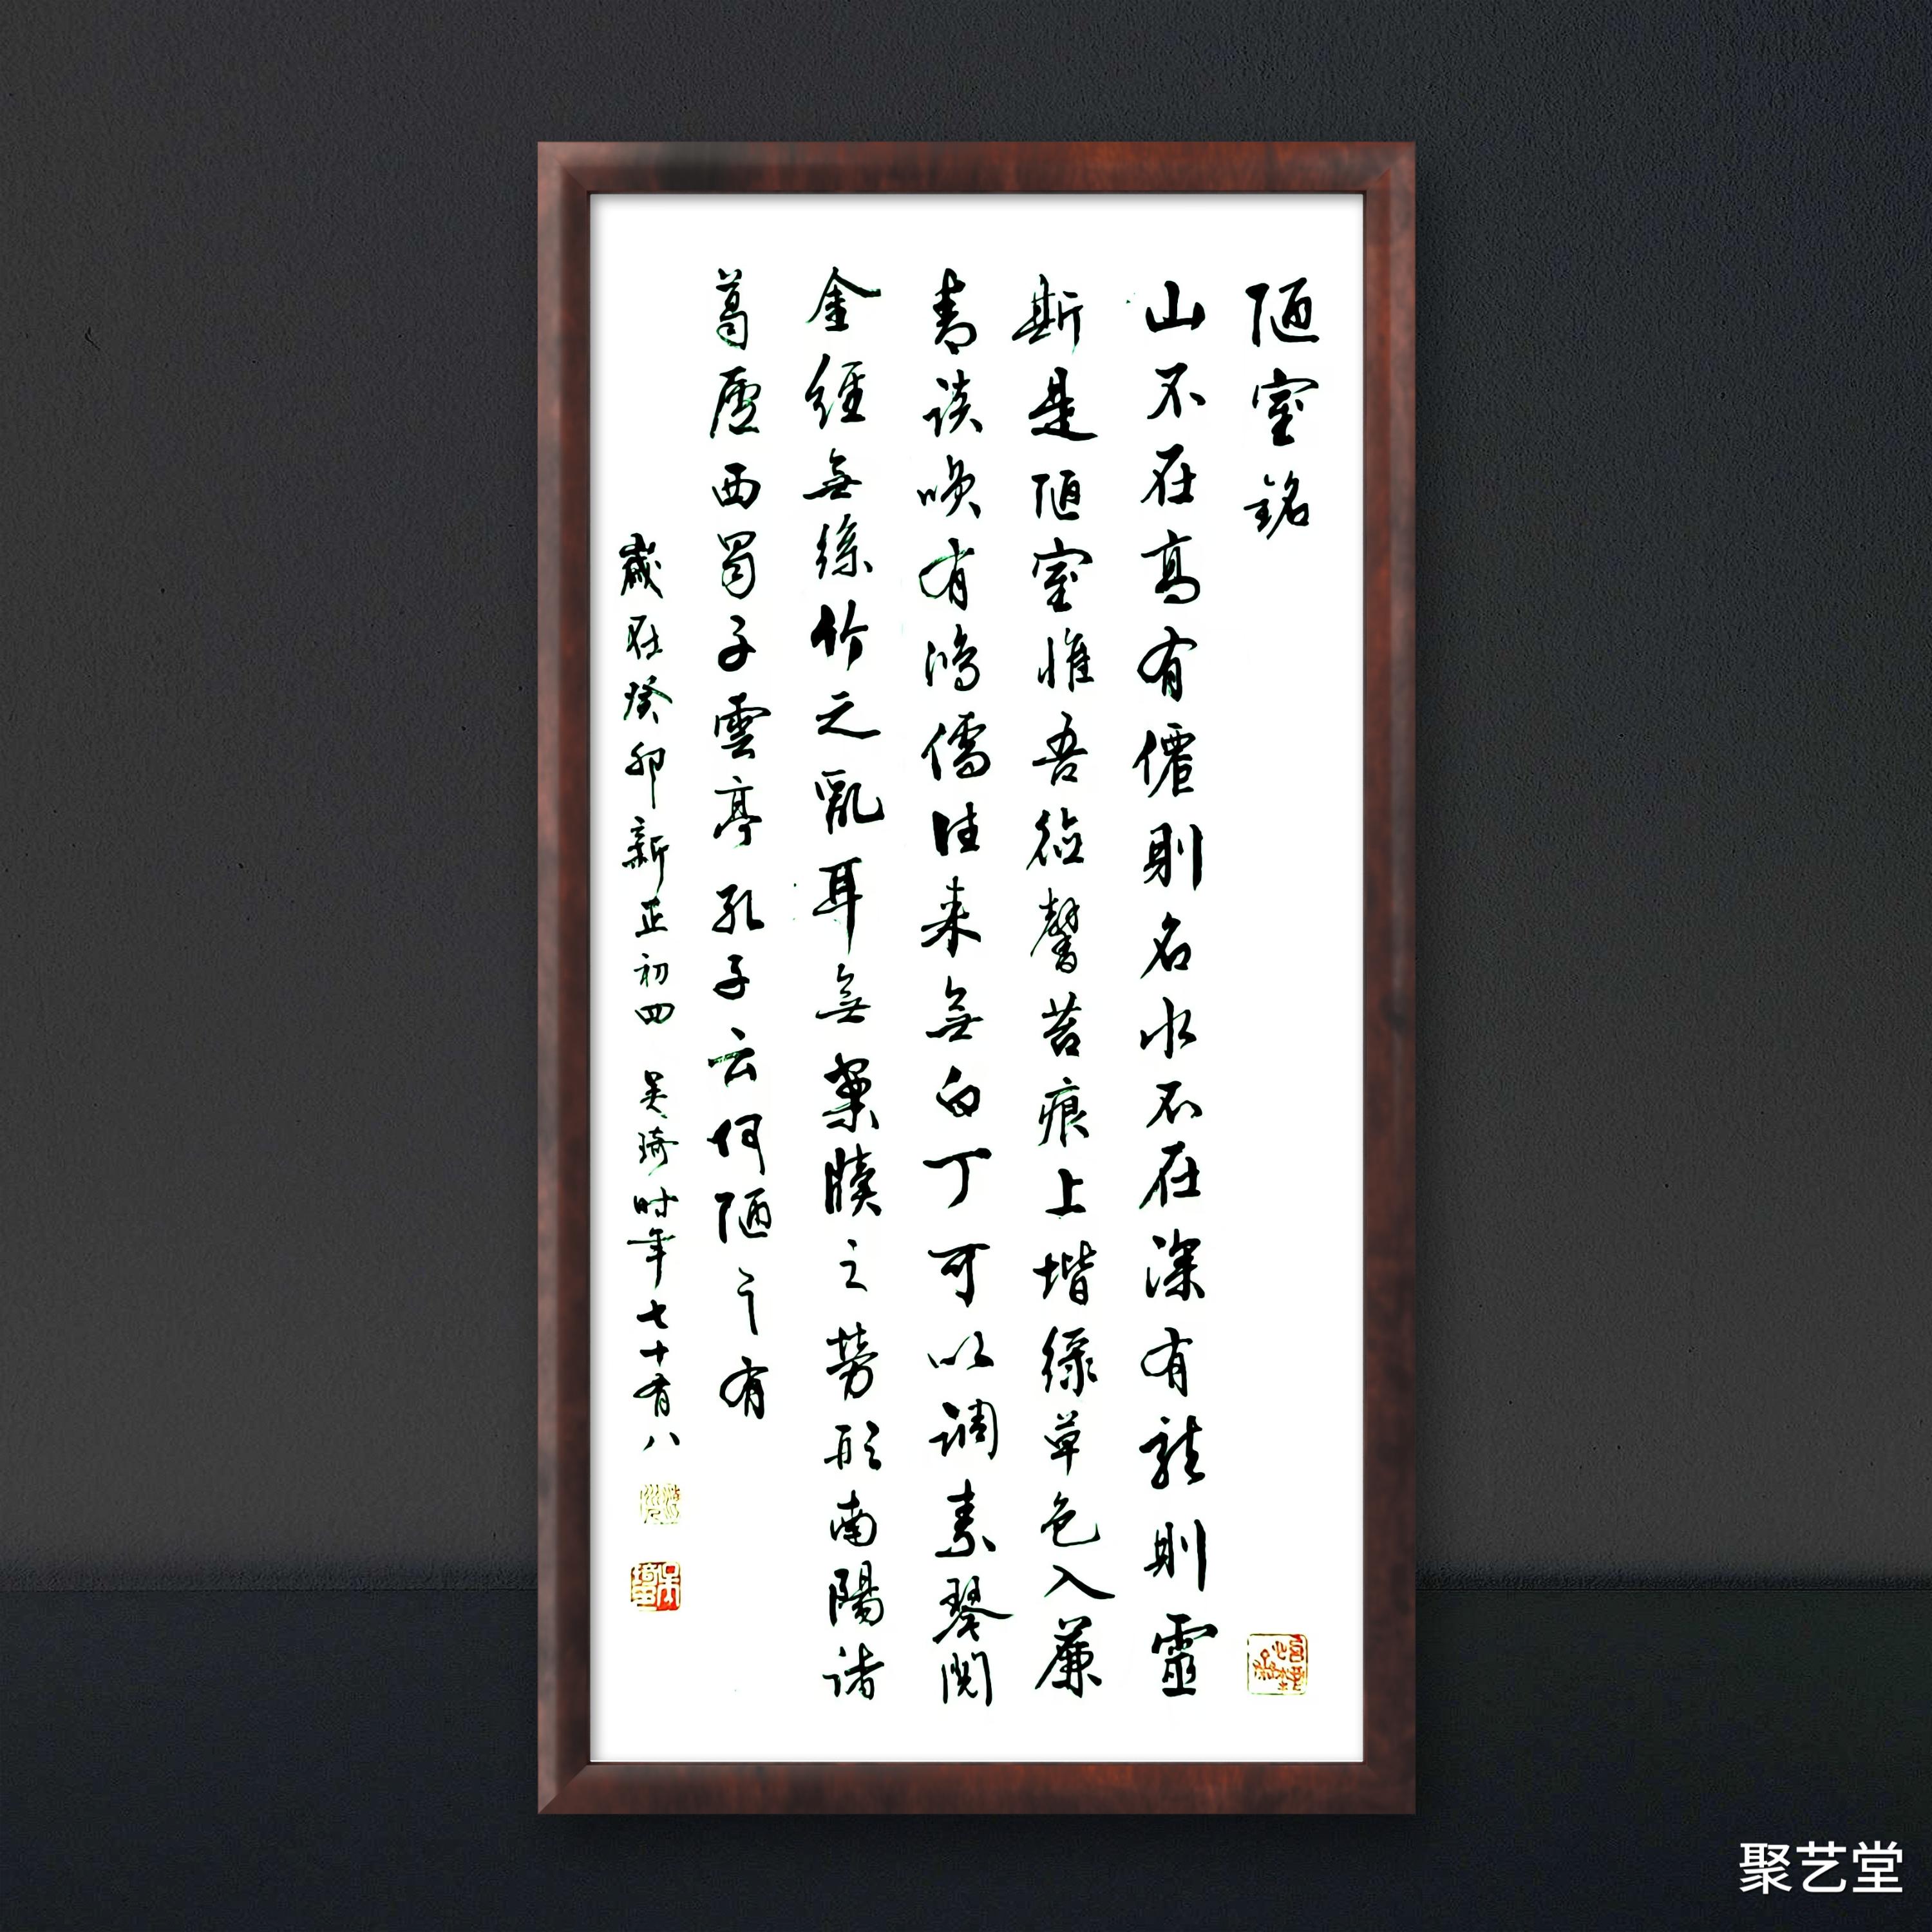 陋室銘
山不在高有僊則名水不在深有龍則靈
斯是陋室惟吾德馨苔痕上堦綠草色入簾
青談咲有鴻儒往来無白丁可以調素琴閱
金經無絲竹之亂耳無案牘之勞形南陽諸
葛廬西蜀子雲亭孔子云何陋之有
歲在癸卯新正初四 吴琦时年七十有八
聚艺堂